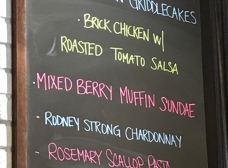 GRIDDLECAKES
• BRICK CHICKEN W/
ROASTED TOMATO SALSA
• MIXED BERRY MUFFIN SUNDAE
• RODNEY STRONG CHARDONNAY
• ROSEMARY SCALLOP PASTA